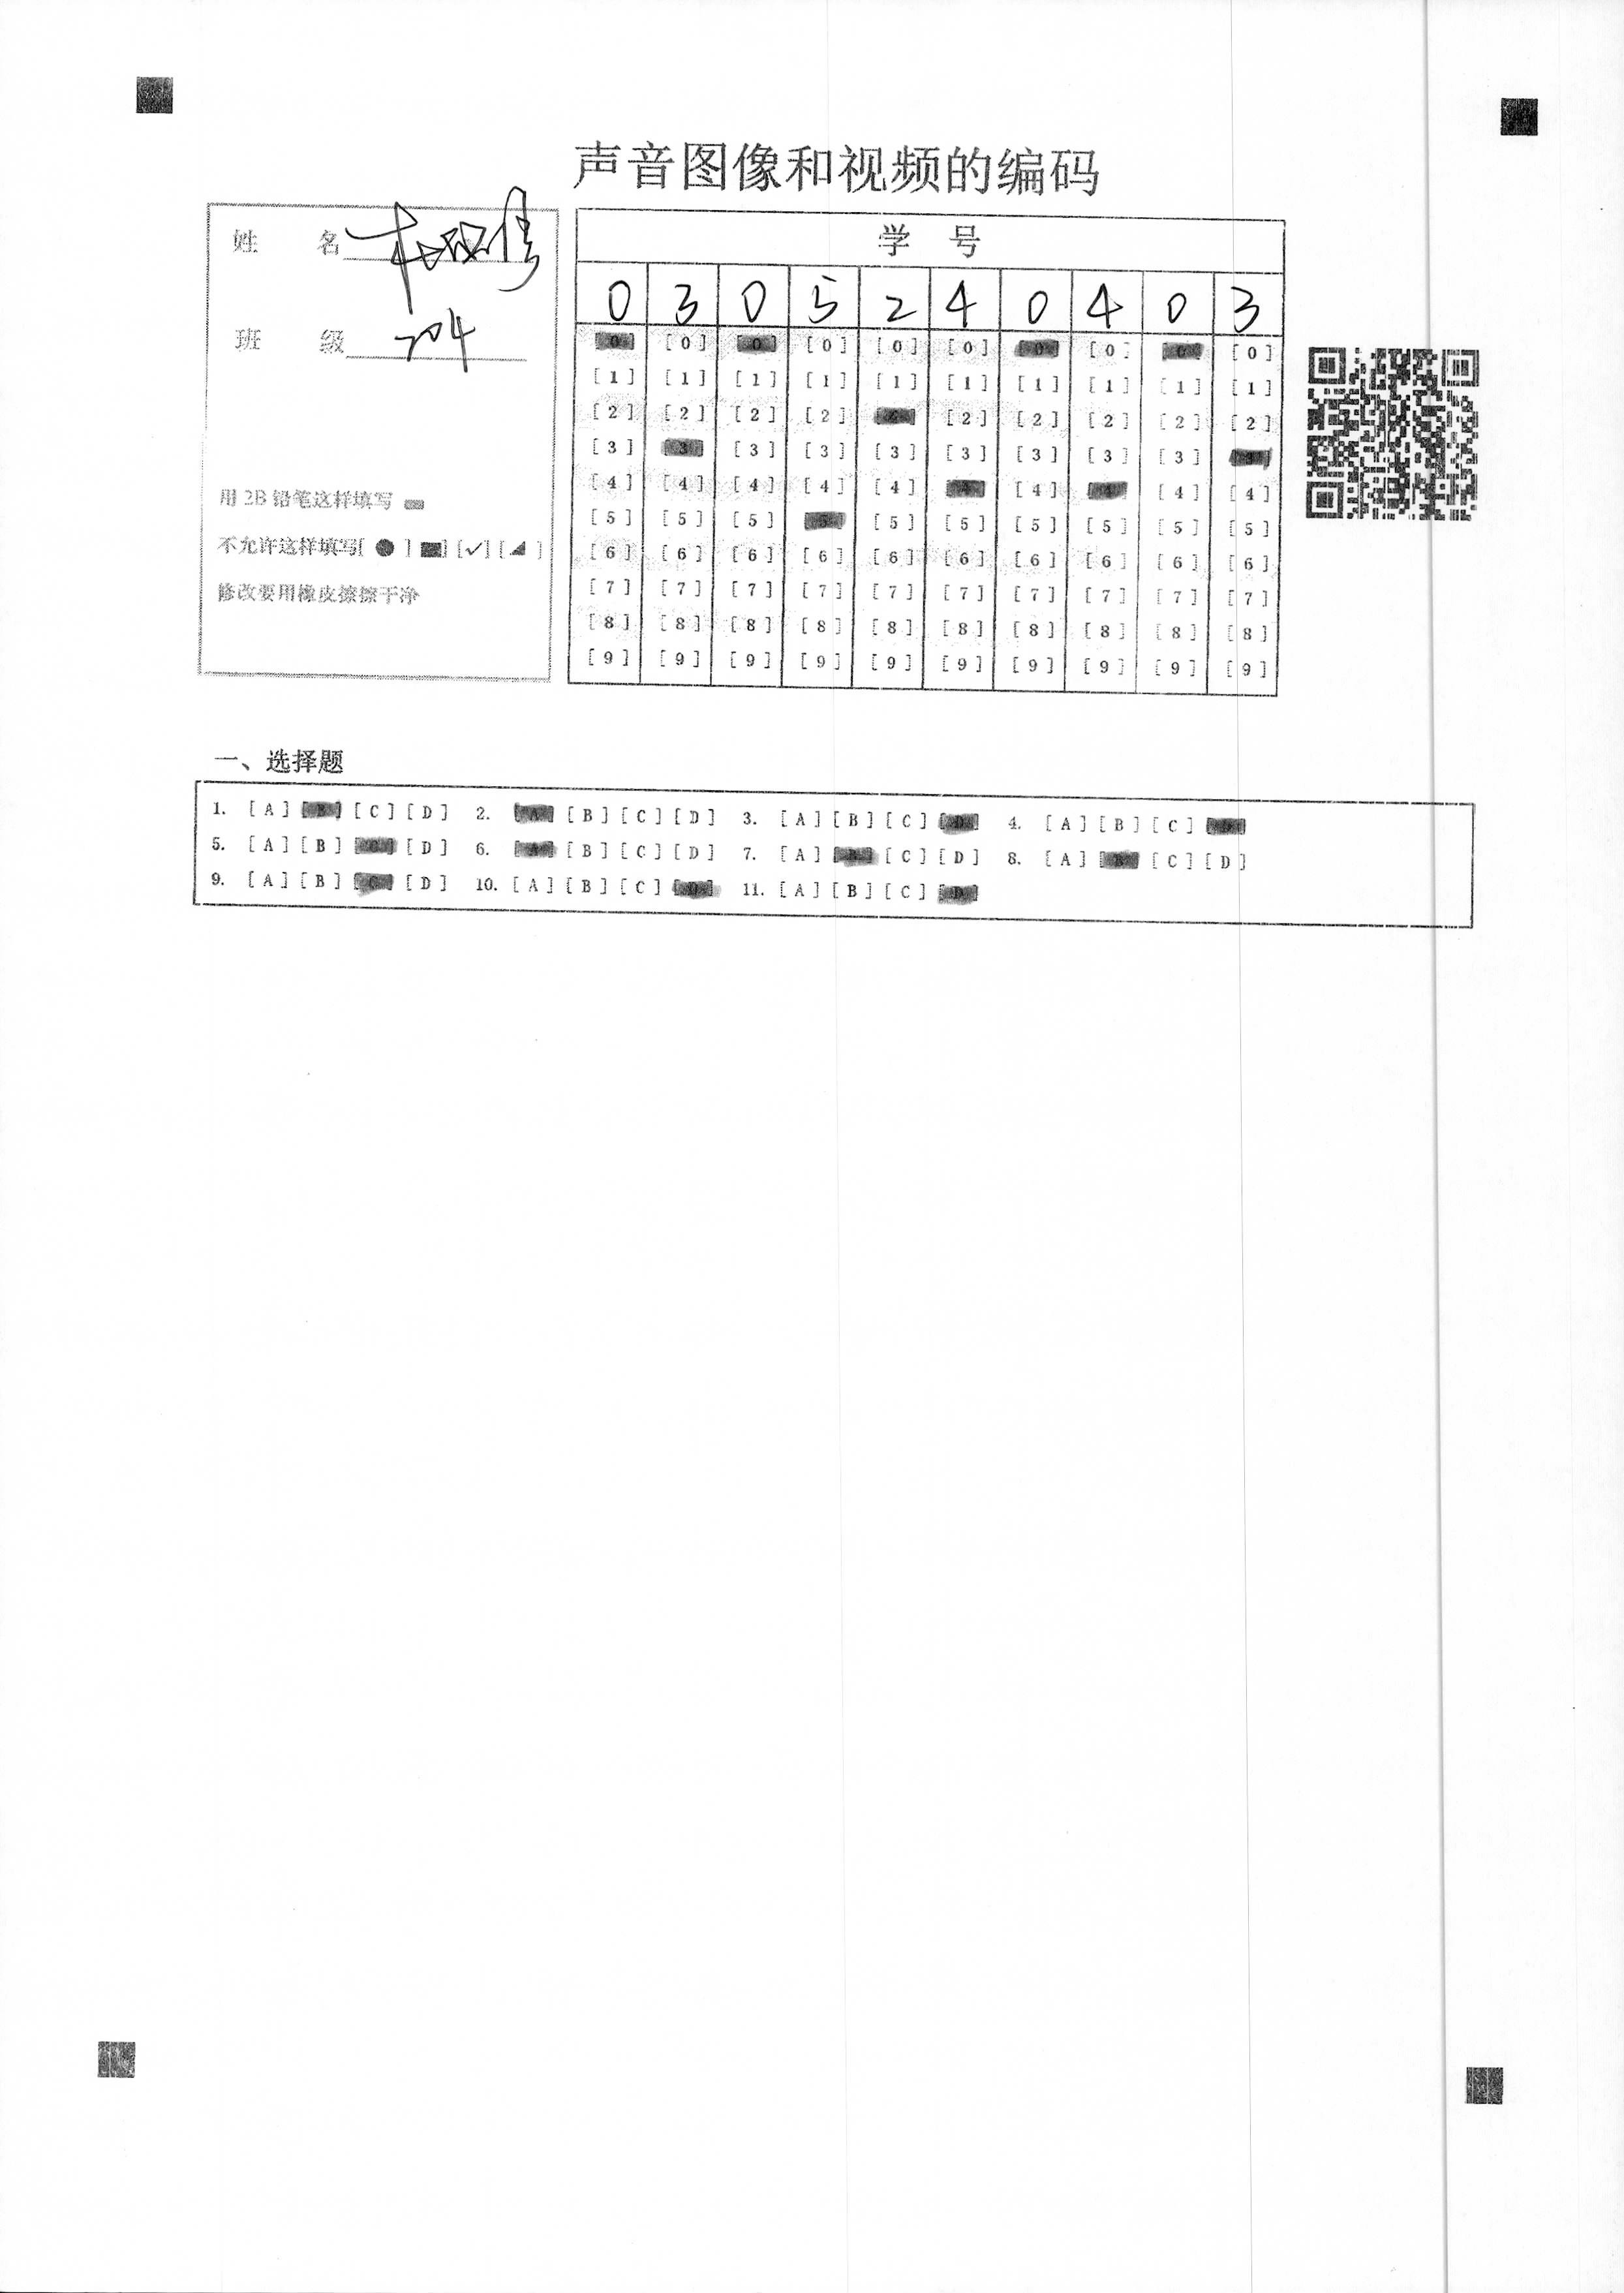 声音图像和视频的编码
姓 名
班 级 204
用 2B 铅笔这样填写
不允许这样填写[ ● ] [■] [✓] [◢ ]
修改要用橡皮擦擦干净
学 号
0 3 0 5 2 4 0 4 0 3
[0] [0] [0] [0] [0] [0] [0] [0] [0] [0]
[1] [1] [1] [1] [1] [1] [1] [1] [1] [1]
[2] [2] [2] [2] [2] [2] [2] [2] [2] [2]
[3] [3] [3] [3] [3] [3] [3] [3] [3] [3]
[4] [4] [4] [4] [4] [4] [4] [4] [4] [4]
[5] [5] [5] [5] [5] [5] [5] [5] [5] [5]
[6] [6] [6] [6] [6] [6] [6] [6] [6] [6]
[7] [7] [7] [7] [7] [7] [7] [7] [7] [7]
[8] [8] [8] [8] [8] [8] [8] [8] [8] [8]
[9] [9] [9] [9] [9] [9] [9] [9] [9] [9]
一、选择题
1. [A] [B] [C] [D] 2. [A] [B] [C] [D] 3. [A] [B] [C] [D] 4. [A] [B] [C] [D]
5. [A] [B] [C] [D] 6. [A] [B] [C] [D] 7. [A] [B] [C] [D] 8. [A] [B] [C] [D]
9. [A] [B] [C] [D] 10. [A] [B] [C] [D] 11. [A] [B] [C] [D]